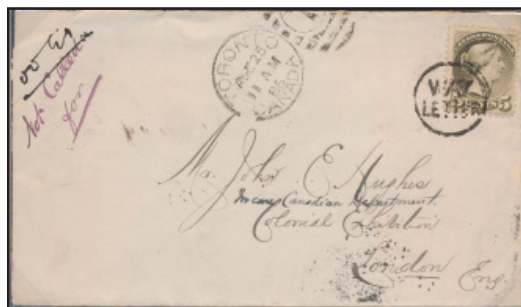 Not Called
for
TORONTO
11 AM
CANADA
WAY
LETTER
5
Mr. John E Hughes
In care Canadian Department.
Colonial Exhibition
London Eng